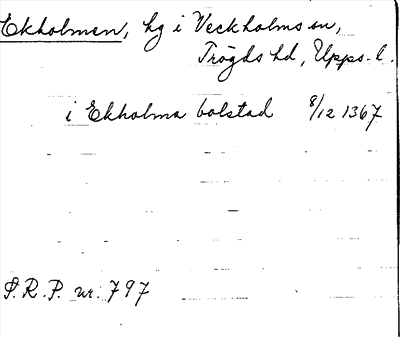 Ekholmen, hg i Veckholms sn,
Trögds hd, Upps. l.
i Ekholma bolstad 8/12 1367
S.R.P. nr. 797